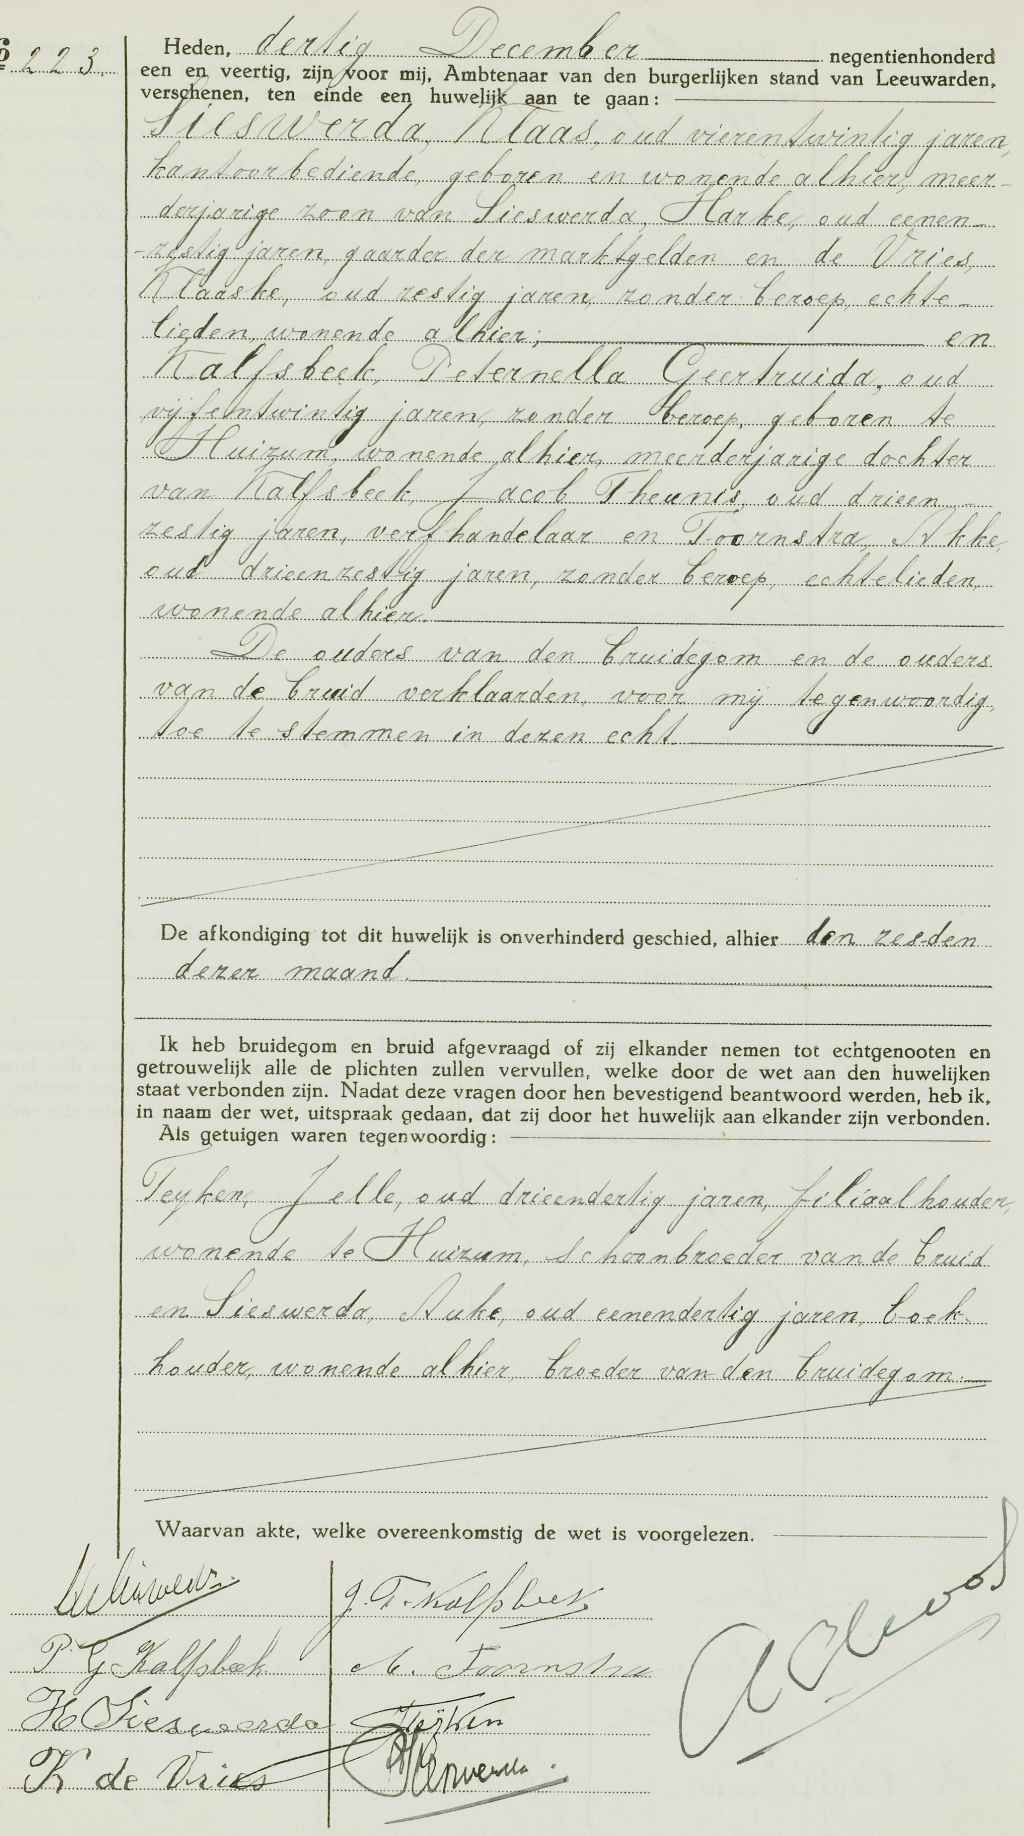 № 223.
Heden, dertig December negentienhonderd
een en veertig, zijn voor mij, Ambtenaar van den burgerlijken stand van Leeuwarden,
verschenen, ten einde een huwelijk aan te gaan:
Sieswerda, Klaas, oud vierentwintig jaren,
kantoorbediende, geboren en wonende alhier, meer-
derjarige zoon van Sieswerda, Harke, oud eenen-
-zestig jaren, gaarder der marktgelden en de Vries,
Klaaske, oud zestig jaren, zonder beroep, echte-
lieden, wonende alhier; en
Kalfsbeek, Peternella Geertruida, oud
vijfentwintig jaren, zonder beroep, geboren te
Huizum, wonende alhier, meerderjarige dochter
van Kalfsbeek, Jacob Theunis, oud drieen-
zestig jaren, verfhandelaar en Toornstra, Akke,
oud drieenzestig jaren, zonder beroep, echtelieden,
wonende alhier.
De ouders van den bruidegom en de ouders
van de bruid verklaarden, voor mij tegenwoordig,
toe te stemmen in dezen echt.
De afkondiging tot dit huwelijk is onverhinderd geschied, alhier den zesden
dezer maand.
Ik heb bruidegom en bruid afgevraagd of zij elkander nemen tot echtgenooten en
getrouwelijk alle de plichten zullen vervullen, welke door de wet aan den huwelijken
staat verbonden zijn. Nadat deze vragen door hen bevestigend beantwoord werden, heb ik,
in naam der wet, uitspraak gedaan, dat zij door het huwelijk aan elkander zijn verbonden.
Als getuigen waren tegenwoordig:
Teyken, Jelle, oud drieendertig jaren, filiaalhouder,
wonende te Huizum, schoonbroeder van de bruid
en Sieswerda, Auke, oud eenendertig jaren, boek-
houder, wonende alhier, broeder van den bruidegom.
Waarvan akte, welke overeenkomstig de wet is voorgelezen.
J. T. Kalfsbeek
P G Kalfsbeek
A. Toornstra
H Sieswerda
Teÿken
K de Vries